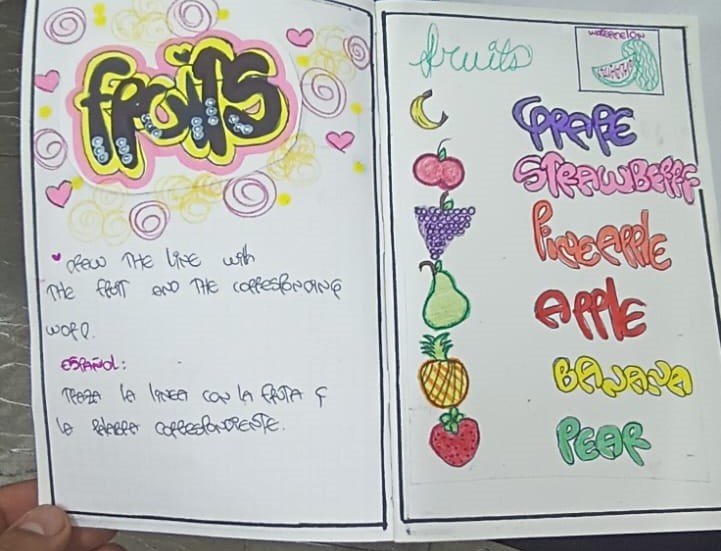 fRUiTS
DRAW THE LINE with
THE FRUIT AND THE CORRESPONDING
WORD.
ESPAÑOL:
TRAZA LA LINEA CON LA FRUTA Y
LA PALABRA CORRESPONDIENTE.
fruits
WATERMELON
GRAPE
STRAWBERRY
PINEAPPLE
APPLE
BANANA
PEAR